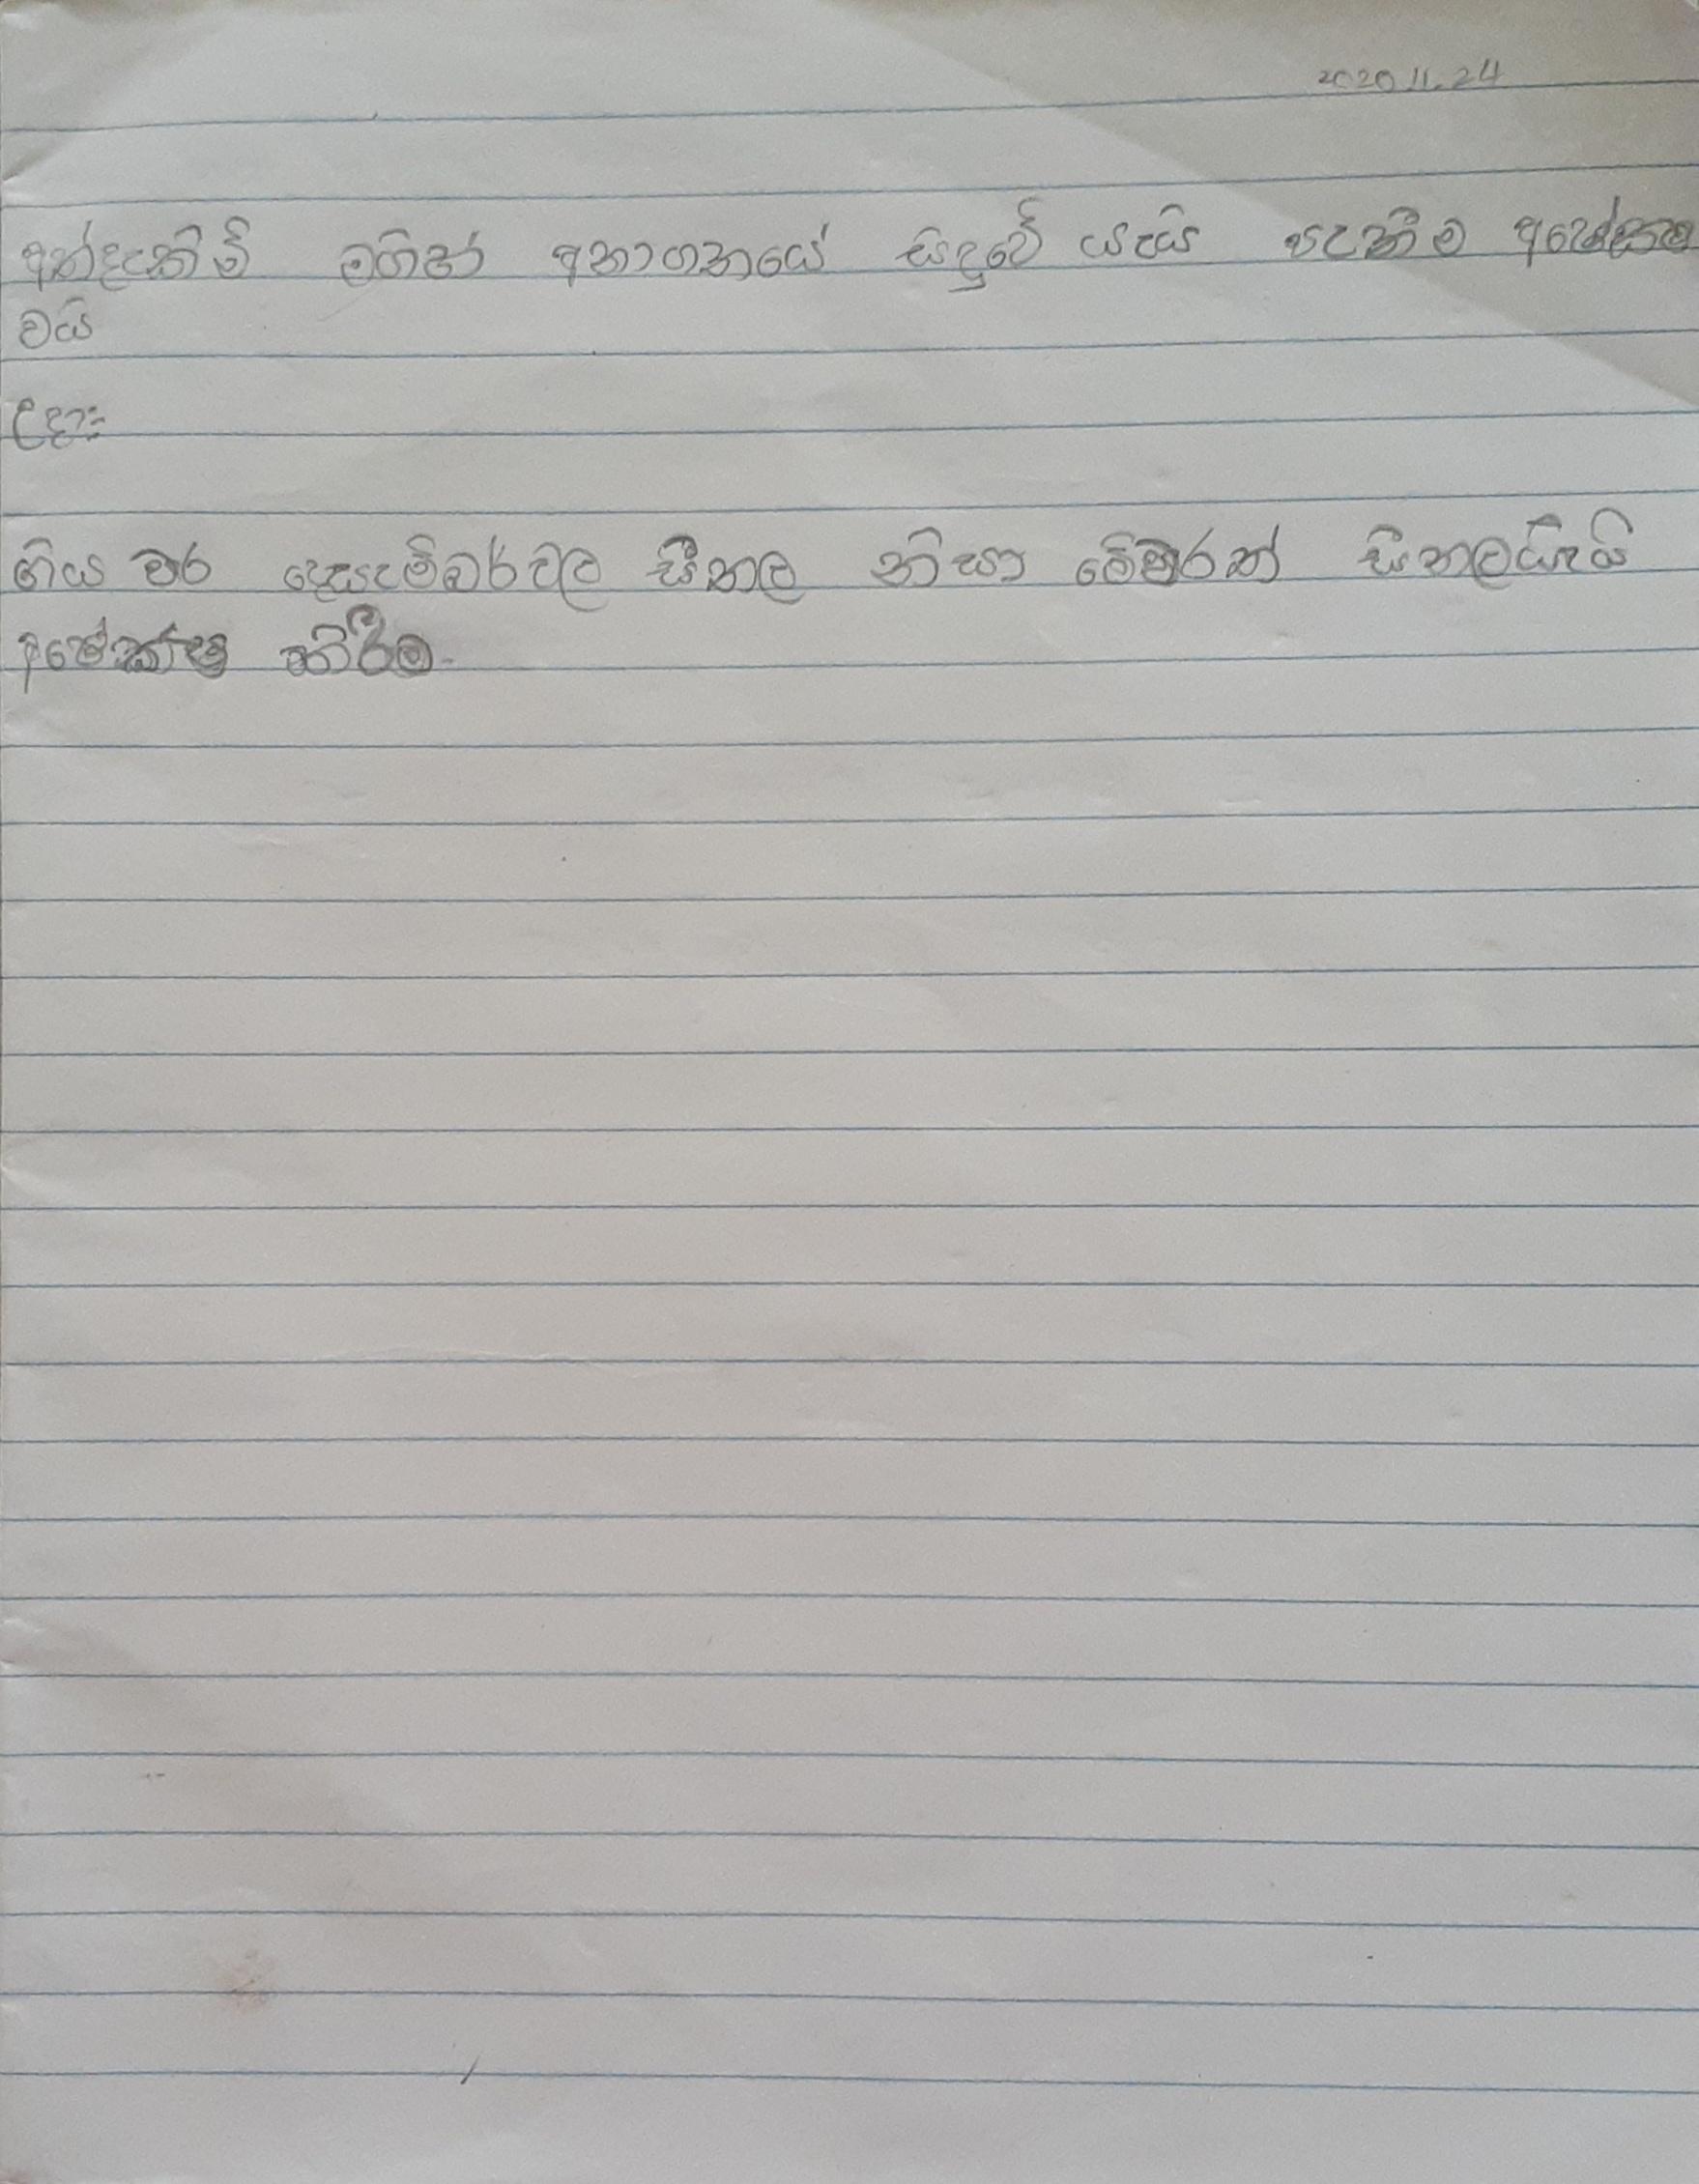 2020.11.24
අත්දැකිම් මගින් අනාගතයේ සිදුවේ යැයි පැතිම
වයි
උදා:-
ගිය වර දෙසැම්බර්වල සීතල නිසා මේවරත් සීතලයියැයි
අපේක්ෂා කිරීම.